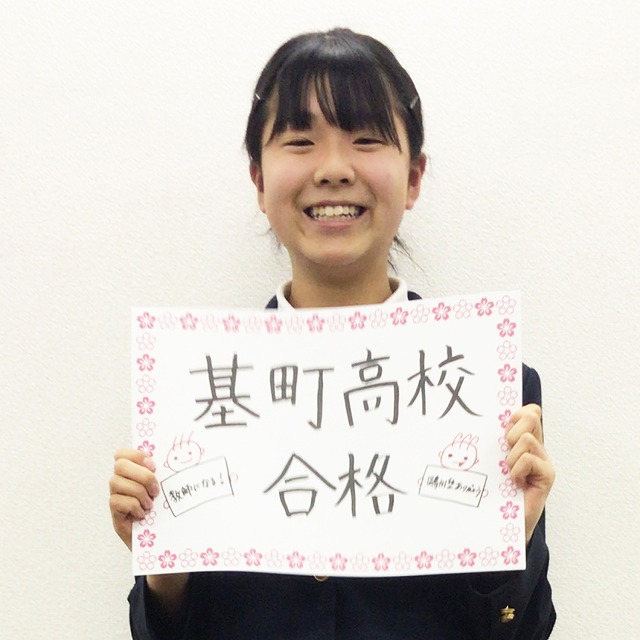 基町高校
合格
教師になる!